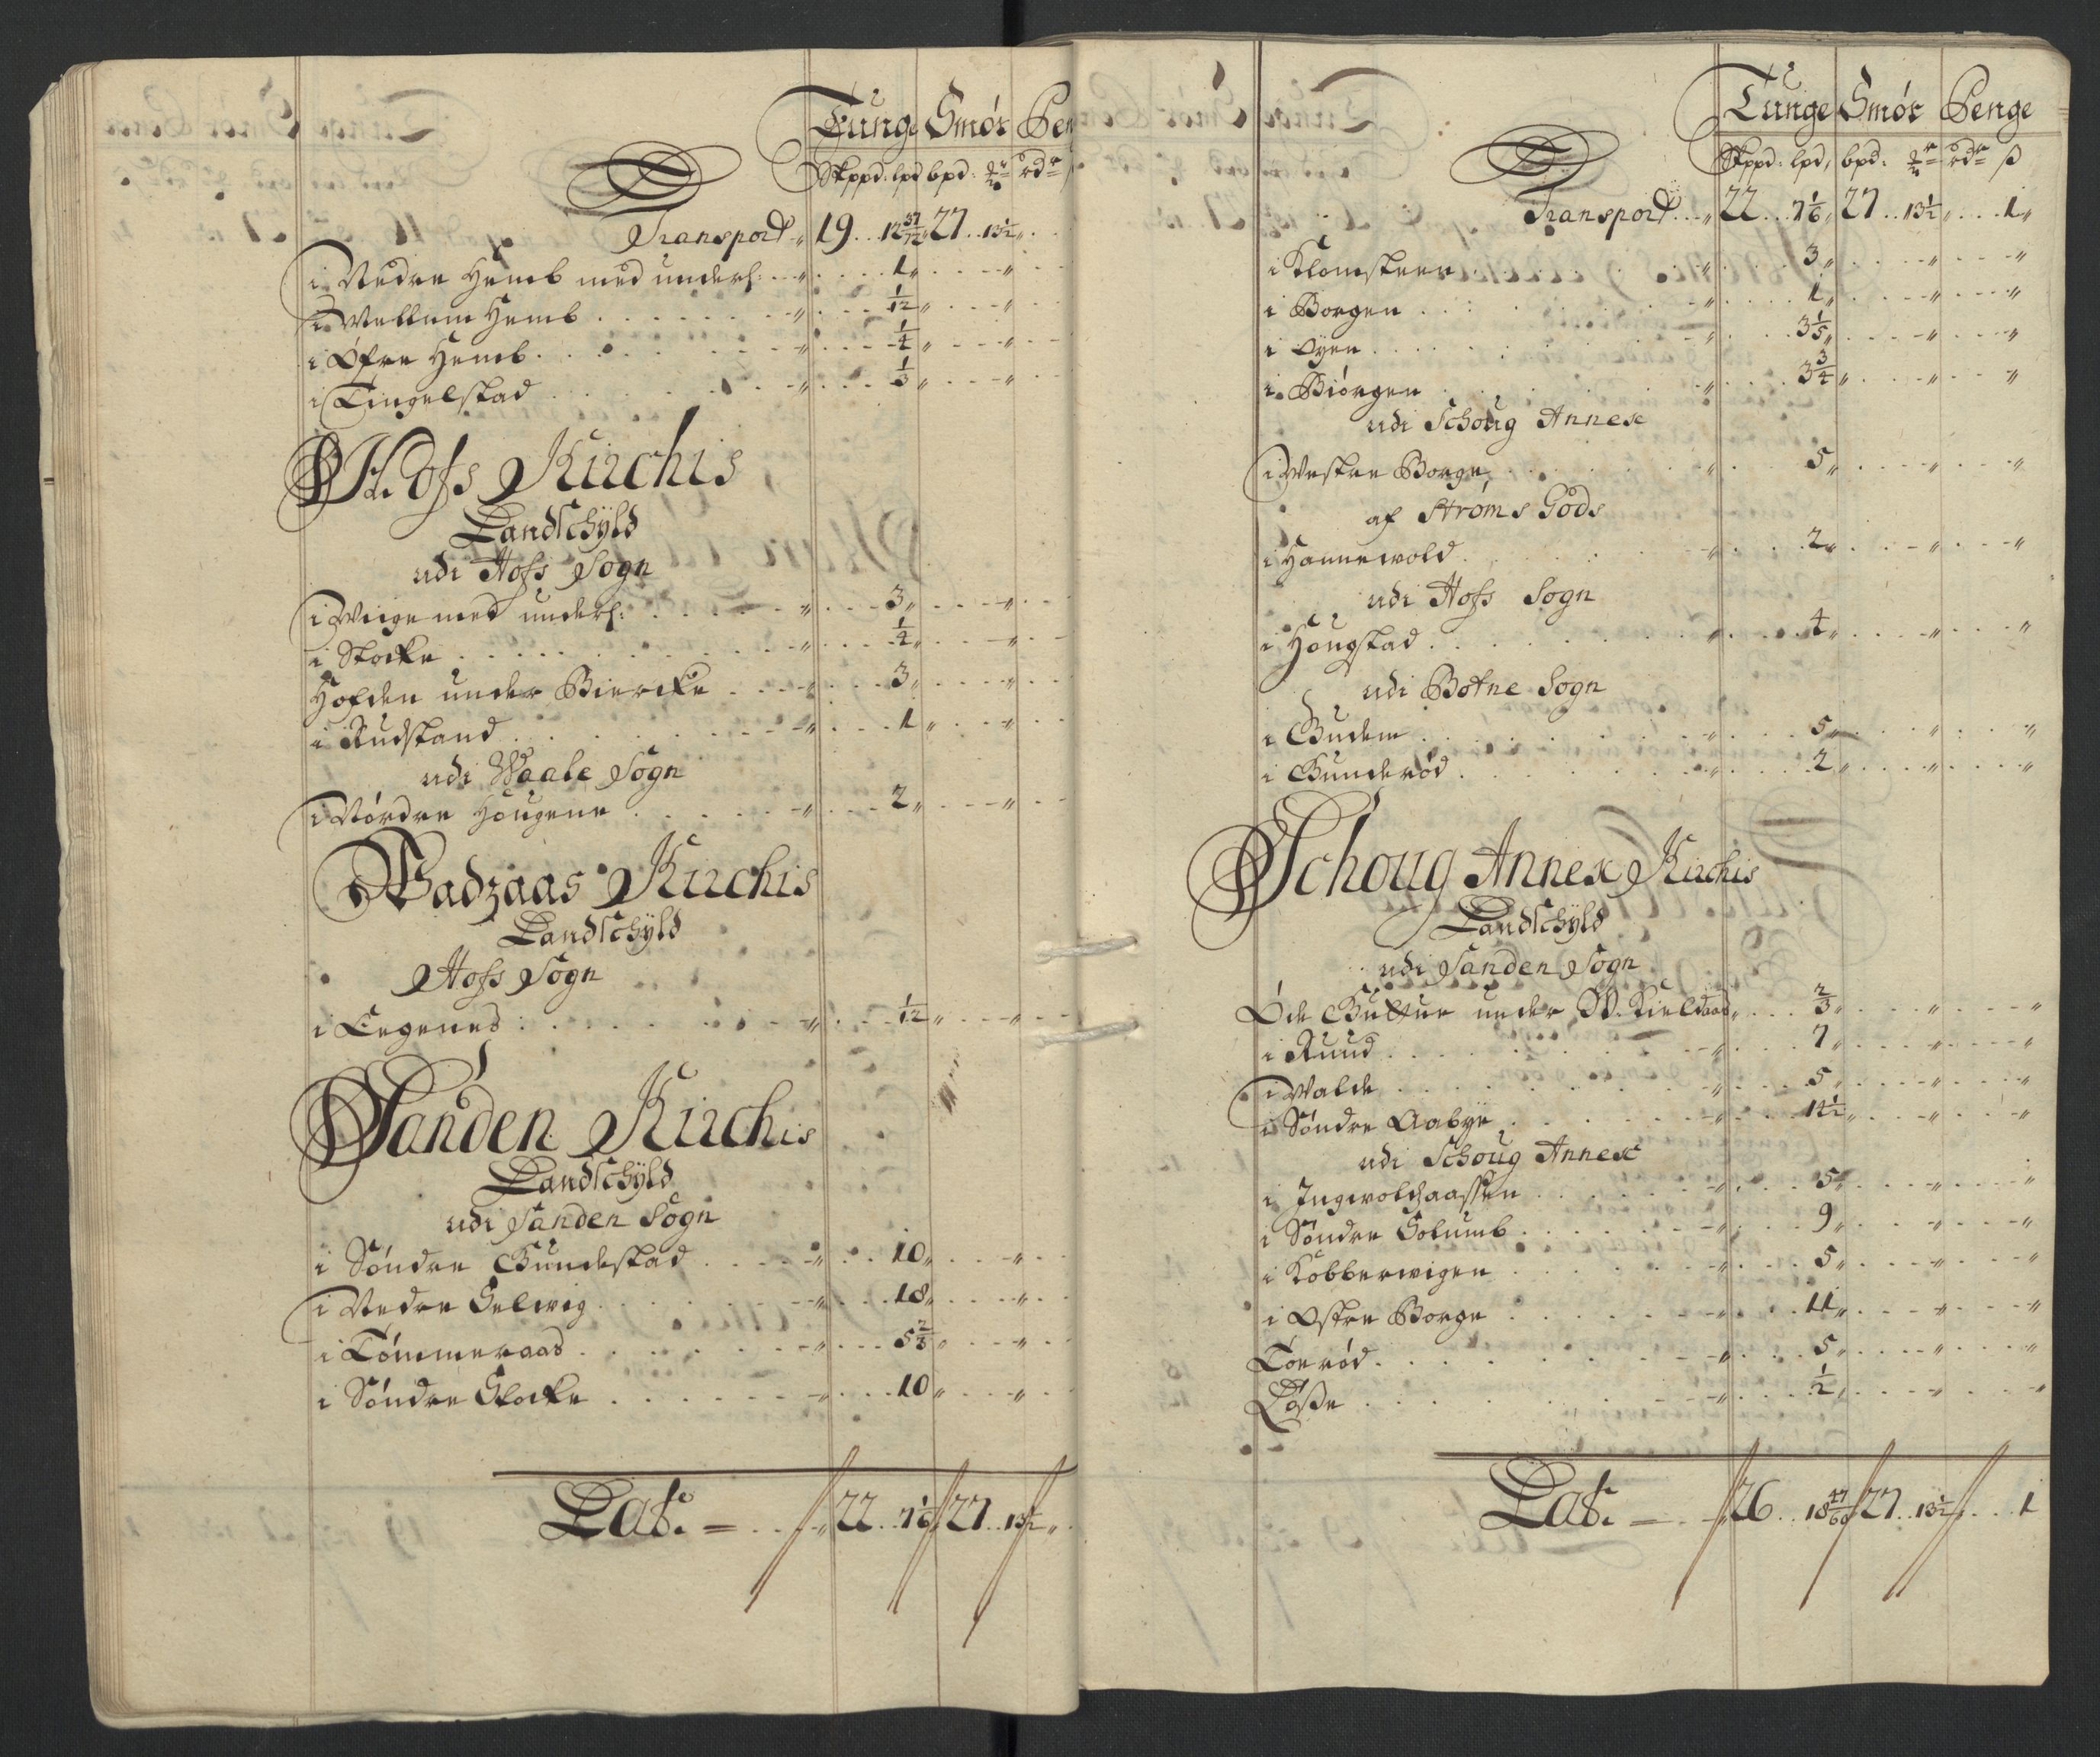 Tunge Smör Pen
Skppd: lpd bpd: rd
Transport 19 12 37/72 27 13½
i Nedre Hemb med underl: 1
i Mellem Hemb 1/12
i Øfre Hemb ¼
i Tingelstad ⅓
Hofs Kirchis
Landschÿld
udi Hofs Sogn
i Wiige med underl: 3
i Stocke ¼
Hofden under Biercke 3
i Rudstand 1
udi Waale Sogn
i Nórdre Hougene 2
Badzaas Kirchis
Landschÿld
Hofs Sogn
i Eegenes 1/12
Sanden Kirchis
Landschÿld
udi Sanden Sogn
i Söndre Gundestad 10
i Nedre Selwig 18
i Tömmeraas 5⅔
i Söndre Stocke 10
Lat. 22 7⅙ 27 13½
Tunge Smör Penge
Skppd: lpd, bpd: rd ß
Transport 22 7⅙ 27 13½ 1
i Klomsteen 3
i Borgen 1
i Oyen 3⅕
i Biörgen 3¾
udi Schoug Annex
i Westre Borge 5
af Ströms Gods
i Hannewold 2
udi Hofs Sogn
i Hougstad 4
udi Botne Sogn
i Gudem 5
i Gunderöd 2
Schoug Annex Kirchis
Landschÿld
udi Sanden Sogn
Öde under W. Kieldaas ⅔
i Ruud 7
i Walde 5
i Söndre Aabye 14½
udi Schoug Annex
i Ingwoldsaassen 5
i Söndre Solumb 9
i Kobberwigen 5
i Ostre Borge 11
Toeröd 5
½
Lat. 26 18 47/60 27 13½ 1